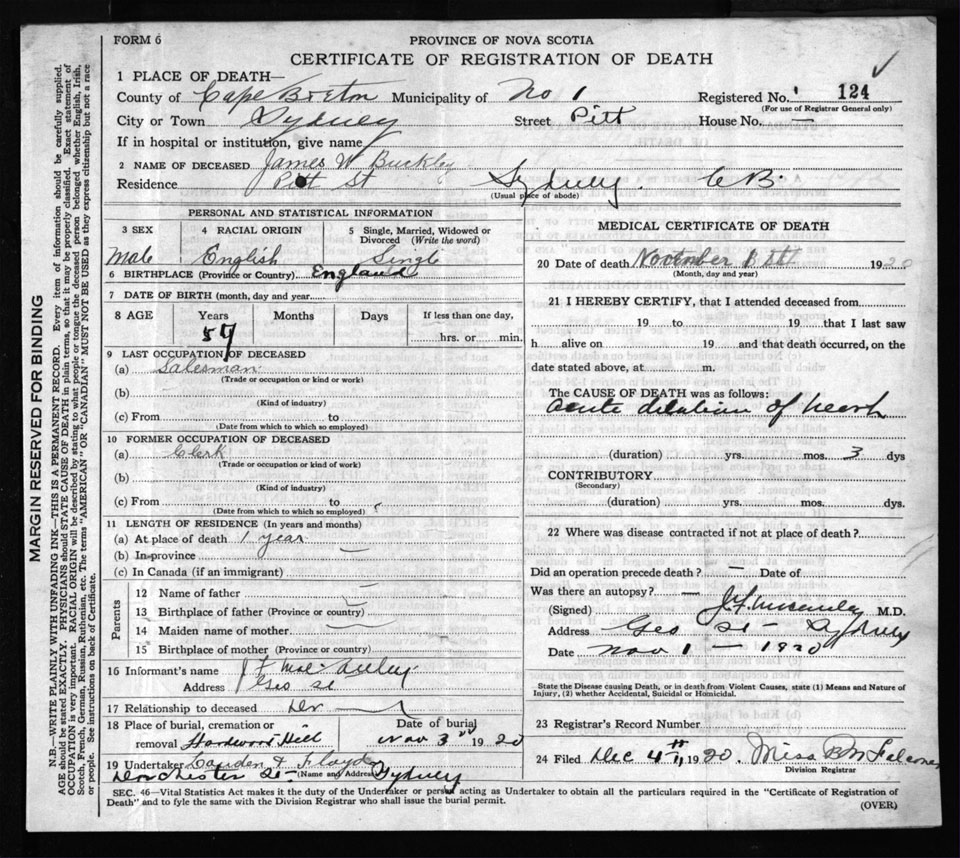 FORM 6
PROVINCE OF NOVA SCOTIA
CERTIFICATE OF REGISTRATION OF DEATH
1 PLACE OF DEATH—
County of Cape Breton Municipality of No 1 Registered No. 124
(For use of Registrar General only)
City or Town Sydney Street Pitt House No. —
If in hospital or institution, give name
2 NAME OF DECEASED James W Buckley
Residence Pitt St Sydney. C B.
(Usual place of abode)
PERSONAL AND STATISTICAL INFORMATION
3 SEX
Male
4 RACIAL ORIGIN
English
5 Single, Married, Widowed or Divorced (Write the word)
Single
6 BIRTHPLACE (Province or Country) England
7 DATE OF BIRTH (month, day and year)
8 AGE Years Months Days If less than one day,
57 hrs. or min.
9 LAST OCCUPATION OF DECEASED
(a) Salesman
(Trade or occupation or kind or work)
(b)
(Kind of industry)
(c) From to
(Date from which to which so employed)
10 FORMER OCCUPATION OF DECEASED
(a) Clerk
(Trade or occupation or kind of work)
(b)
(Kind of industry)
(c) From to
(Date from which to which so employed)
11 LENGTH OF RESIDENCE (In years and months)
(a) At place of death 1 year
(b) In province —
(c) In Canada (if an immigrant)
Parents
12 Name of father —
13 Birthplace of father (Province or country) —
14 Maiden name of mother —
15 Birthplace of mother (Province or country) —
16 Informant's name J F
Address Geo St
17 Relationship to deceased Dr
18 Place of burial, cremation or removal Hardwood Hill
Date of burial Nov 3rd 1920
19 Undertaker & Floyd
Dorchester St — (Name and Address) Sydney
MEDICAL CERTIFICATE OF DEATH
20 Date of death November 1920
(Month, day and year)
21 I HEREBY CERTIFY, that I attended deceased from
19 to 19 that I last saw
h alive on 19 and that death occurred, on the
date stated above, at m.
The CAUSE OF DEATH was as follows:
Acute dilation of heart
(duration) yrs. mos. 3 dys
CONTRIBUTORY
(Secondary)
(duration) yrs. mos. dys.
22 Where was disease contracted if not at place of death?
Did an operation precede death? — Date of
Was there an autopsy? —
(Signed) J. F. M.D.
Address Geo St — Sydney
Date Nov 1 — 1920
State the Disease causing Death, or in death from Violent Causes, state (1) Means and Nature of
Injury, (2) whether Accidental, Suicidal or Homicidal.
23 Registrar's Record Number
24 Filed Dec 4th, 1920. Miss B M
Division Registrar
SEC. 46—Vital Statistics Act makes it the duty of the Undertaker or person acting as Undertaker to obtain all the particulars required in the "Certificate of Registration of
Death" and to fyle the same with the Division Registrar who shall issue the burial permit.
(OVER)
MARGIN RESERVED FOR BINDING
N.B.—WRITE PLAINLY WITH UNFADING INK—THIS IS A PERMANENT RECORD. Every item of information should be carefully supplied.
AGE should be stated EXACTLY. PHYSICIANS should STATE CAUSE OF DEATH in plain terms, so that it may be properly classified. Exact statement of
OCCUPATION is very important. RACIAL ORIGIN will be described by stating to what people or tongue the deceased person belonged whether English, Irish,
Scotch, French, German, Russian, Ruthenian, etc. The terms "AMERICAN" OR "CANADIAN" MUST NOT BE USED as they express citizenship but not a race
or people. See instructions on back of Certificate.